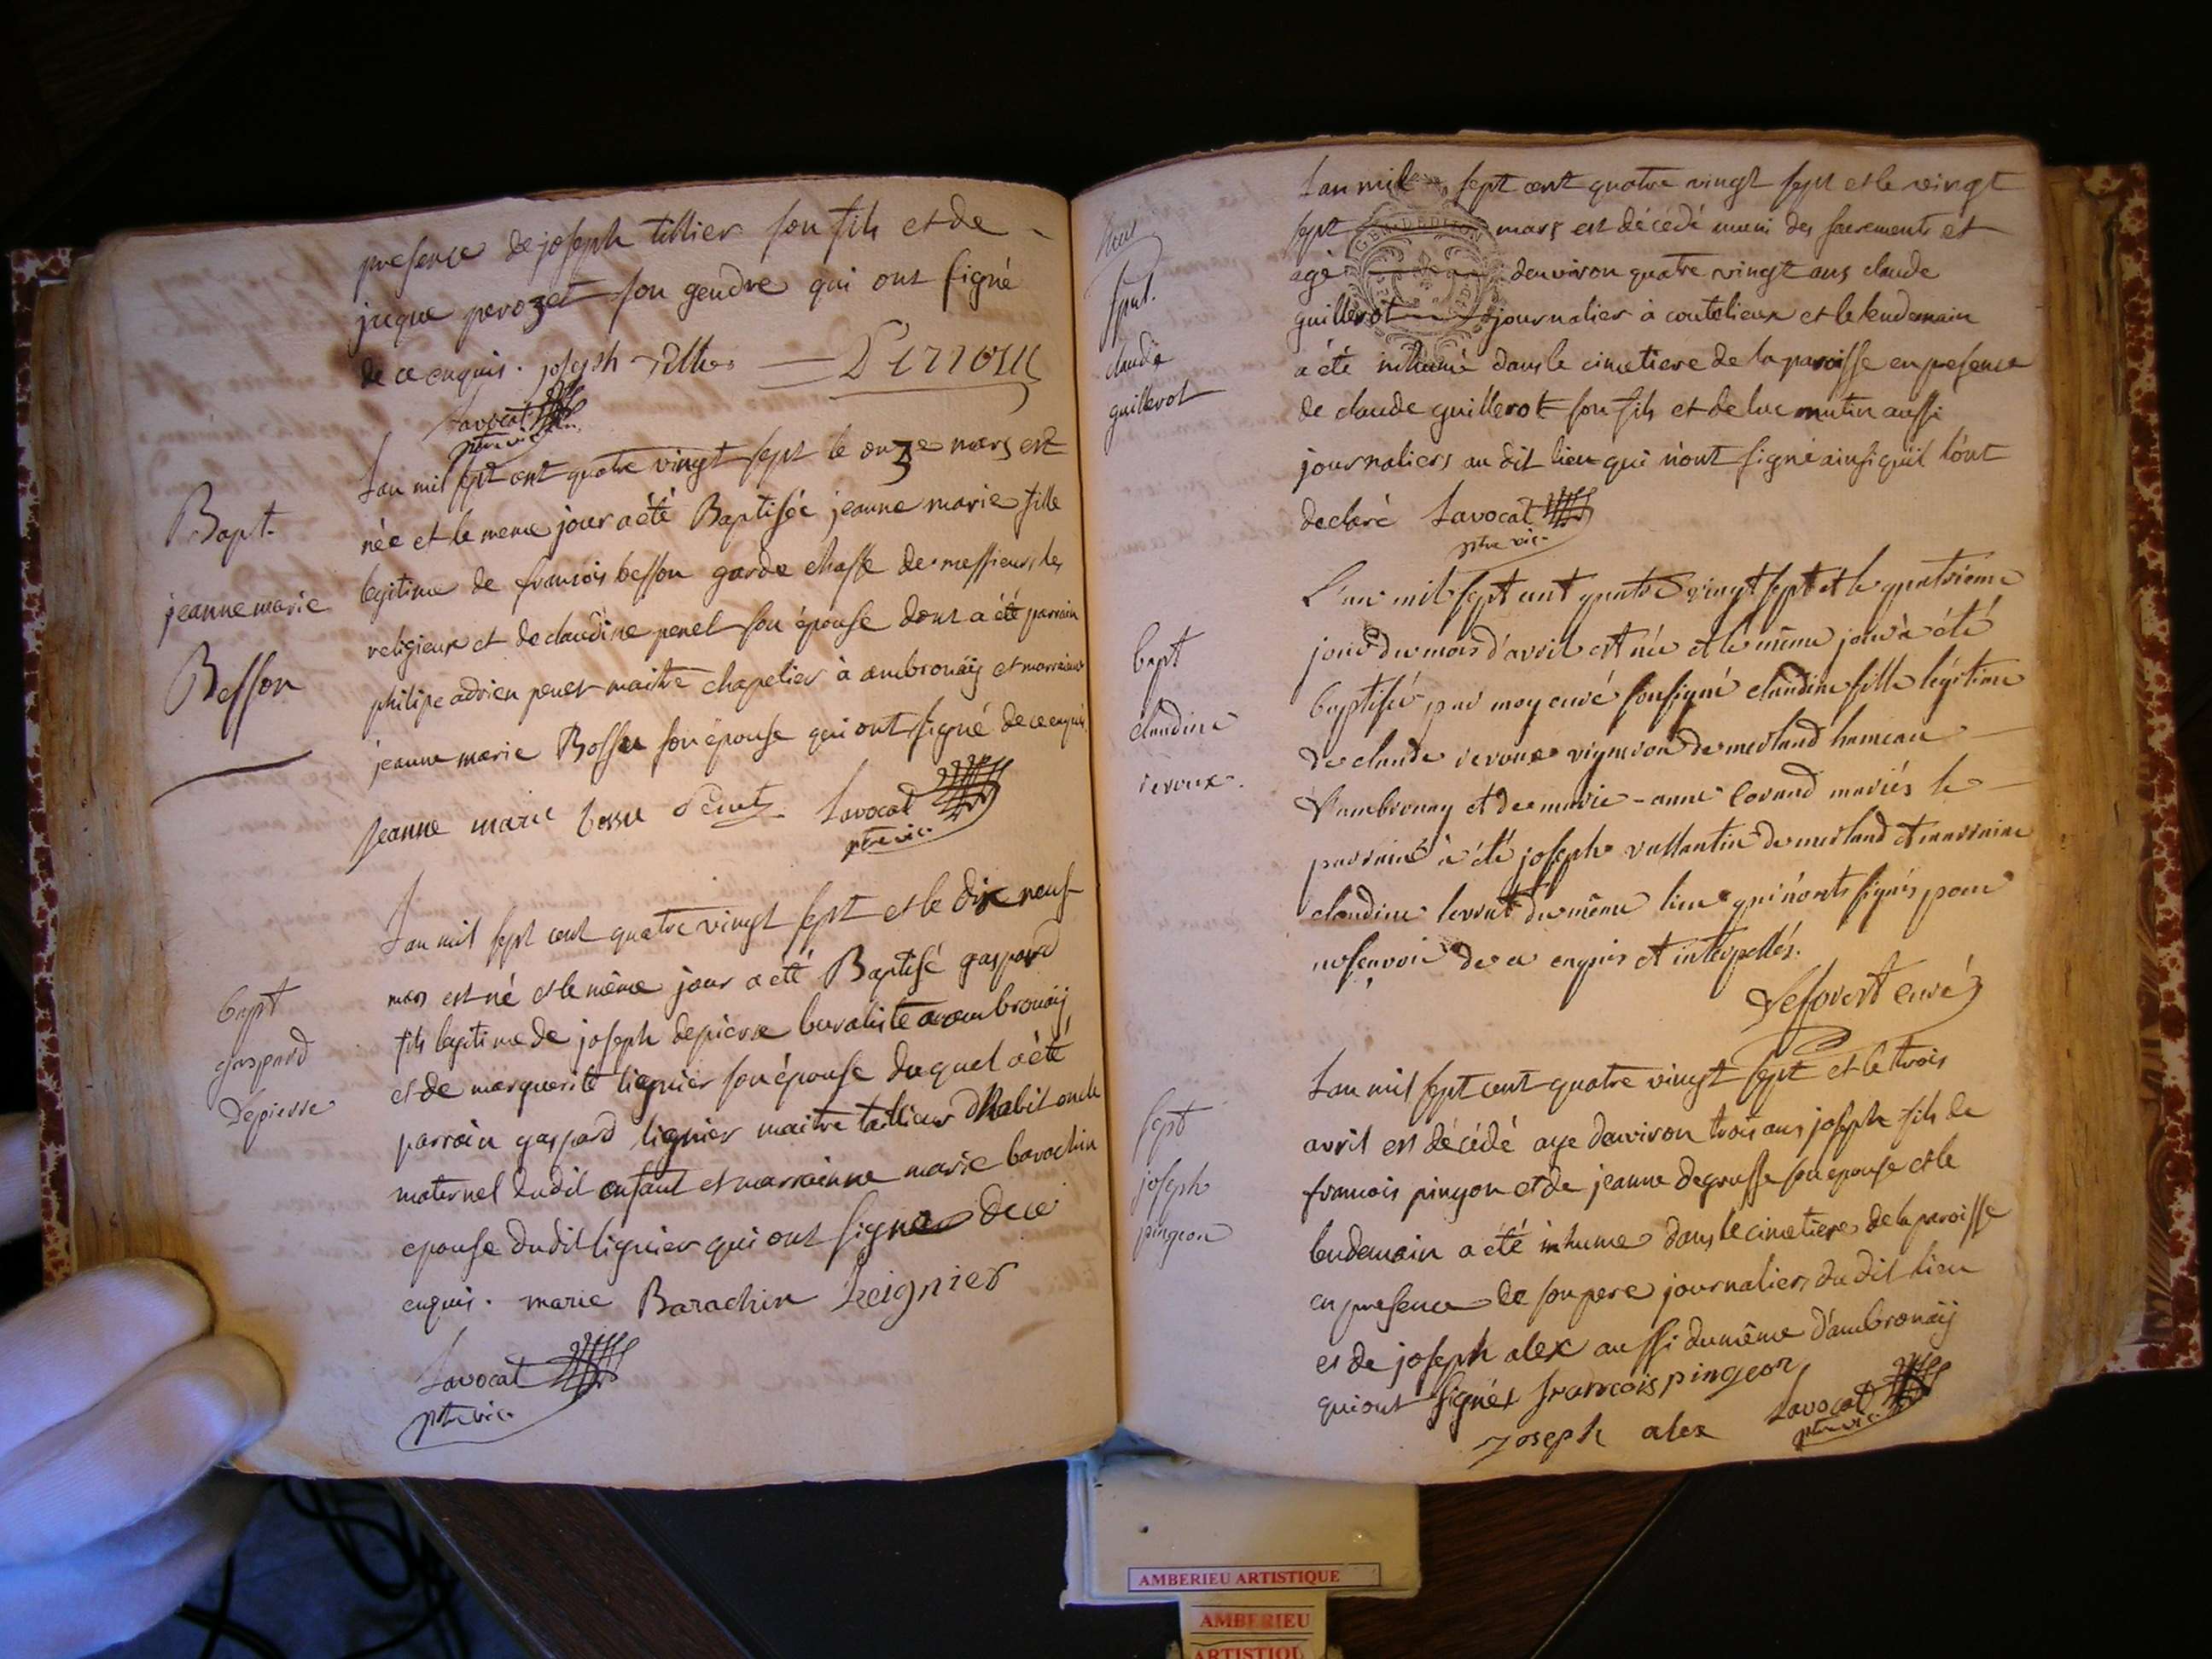 presence de joseph tillier son fils et de
jaque perozet son gendre qui ont signé
de ce enquis . joseph tillier
Lavocat
ptre vic.
Bapt.
jeanne marie
Besson
Lan mil sept cent quatre vingt sept le onze mars est
née et le meme jour a été Baptisée jeanne marie fille
legitime de francois besson garde chasse de messieurs les
religieux et de claudine penet son épouse dont a été parrain
philipe adrien penet maitre chapelier à ambronaÿ et marraine
jeanne marie Bossu son épouse qui ont signé de ce enquis
jeanne marie bossu Penet Lavocat
ptre vic.
bapt
gaspard
depierre
Lan mil sept cent quatre vingt sept et le dix neuf
mars est né et le même jour a été Baptisé gaspard
fils legitime de joseph depierre buraliste a ambronaÿ
et de marguerite lignier son épouse duquel a été
parrain gaspard lignier maitre tailleur d'habit oncle
maternel dudit enfant et marrainne marie barachin
epouse dudit lignier qui ont signé de ce
enquis . marie Barachin Leignier
Lavocat
ptre vic.
Lan mil sept cent quatre vingt sept et le vingt
sept mars est décédé muni des sacrements et
agé denviron quatre vingt ans claude
guillerot journalier à coutelieux et le lendemain
a été inhumé dans le cimetiere de la paroisse en presence
de claude guillerot son fils et de luc mutin aussi
journaliers au dit lieu qui n'ont signé ainsi qu'il l'ont
declaré Lavocat
ptre vic.
sput.
claude
guillerot
GEN. DE DIJON
bapt
claudine
reroux.
L'an mil sept cent quatre vingt sept et le quatrieme
jour du mois d'avril est née et le même jour a été
baptisée par moy curé soussigné claudine fille légitime
de claude reroux vigneron de merland hameau
d'ambronay et de marie-anne Corand mariés le
parrain a été joseph vallantin de merland et marraine
claudine levrat du même lieu qui n'onts signés pour
ne sçavoir de ce enquis et interpellés.
Leforert curé
sept
joseph
pingeon
Lan mil sept cent quatre vingt sept et le trois
avril est décédé age denviron trois ans joseph fils de
francois pingon et de jeanne degrusse son epouse et le
lendemain a été inhume dans le cimetiere de la paroisse
en presence de son pere journalier du dit lieu
et de joseph alex aussi du même d'ambronaÿ
qui ont signés francois pingeon
joseph alex Lavocat
ptre vic.
AMBERIEU ARTISTIQUE
AMBERIEU
ARTISTIQU